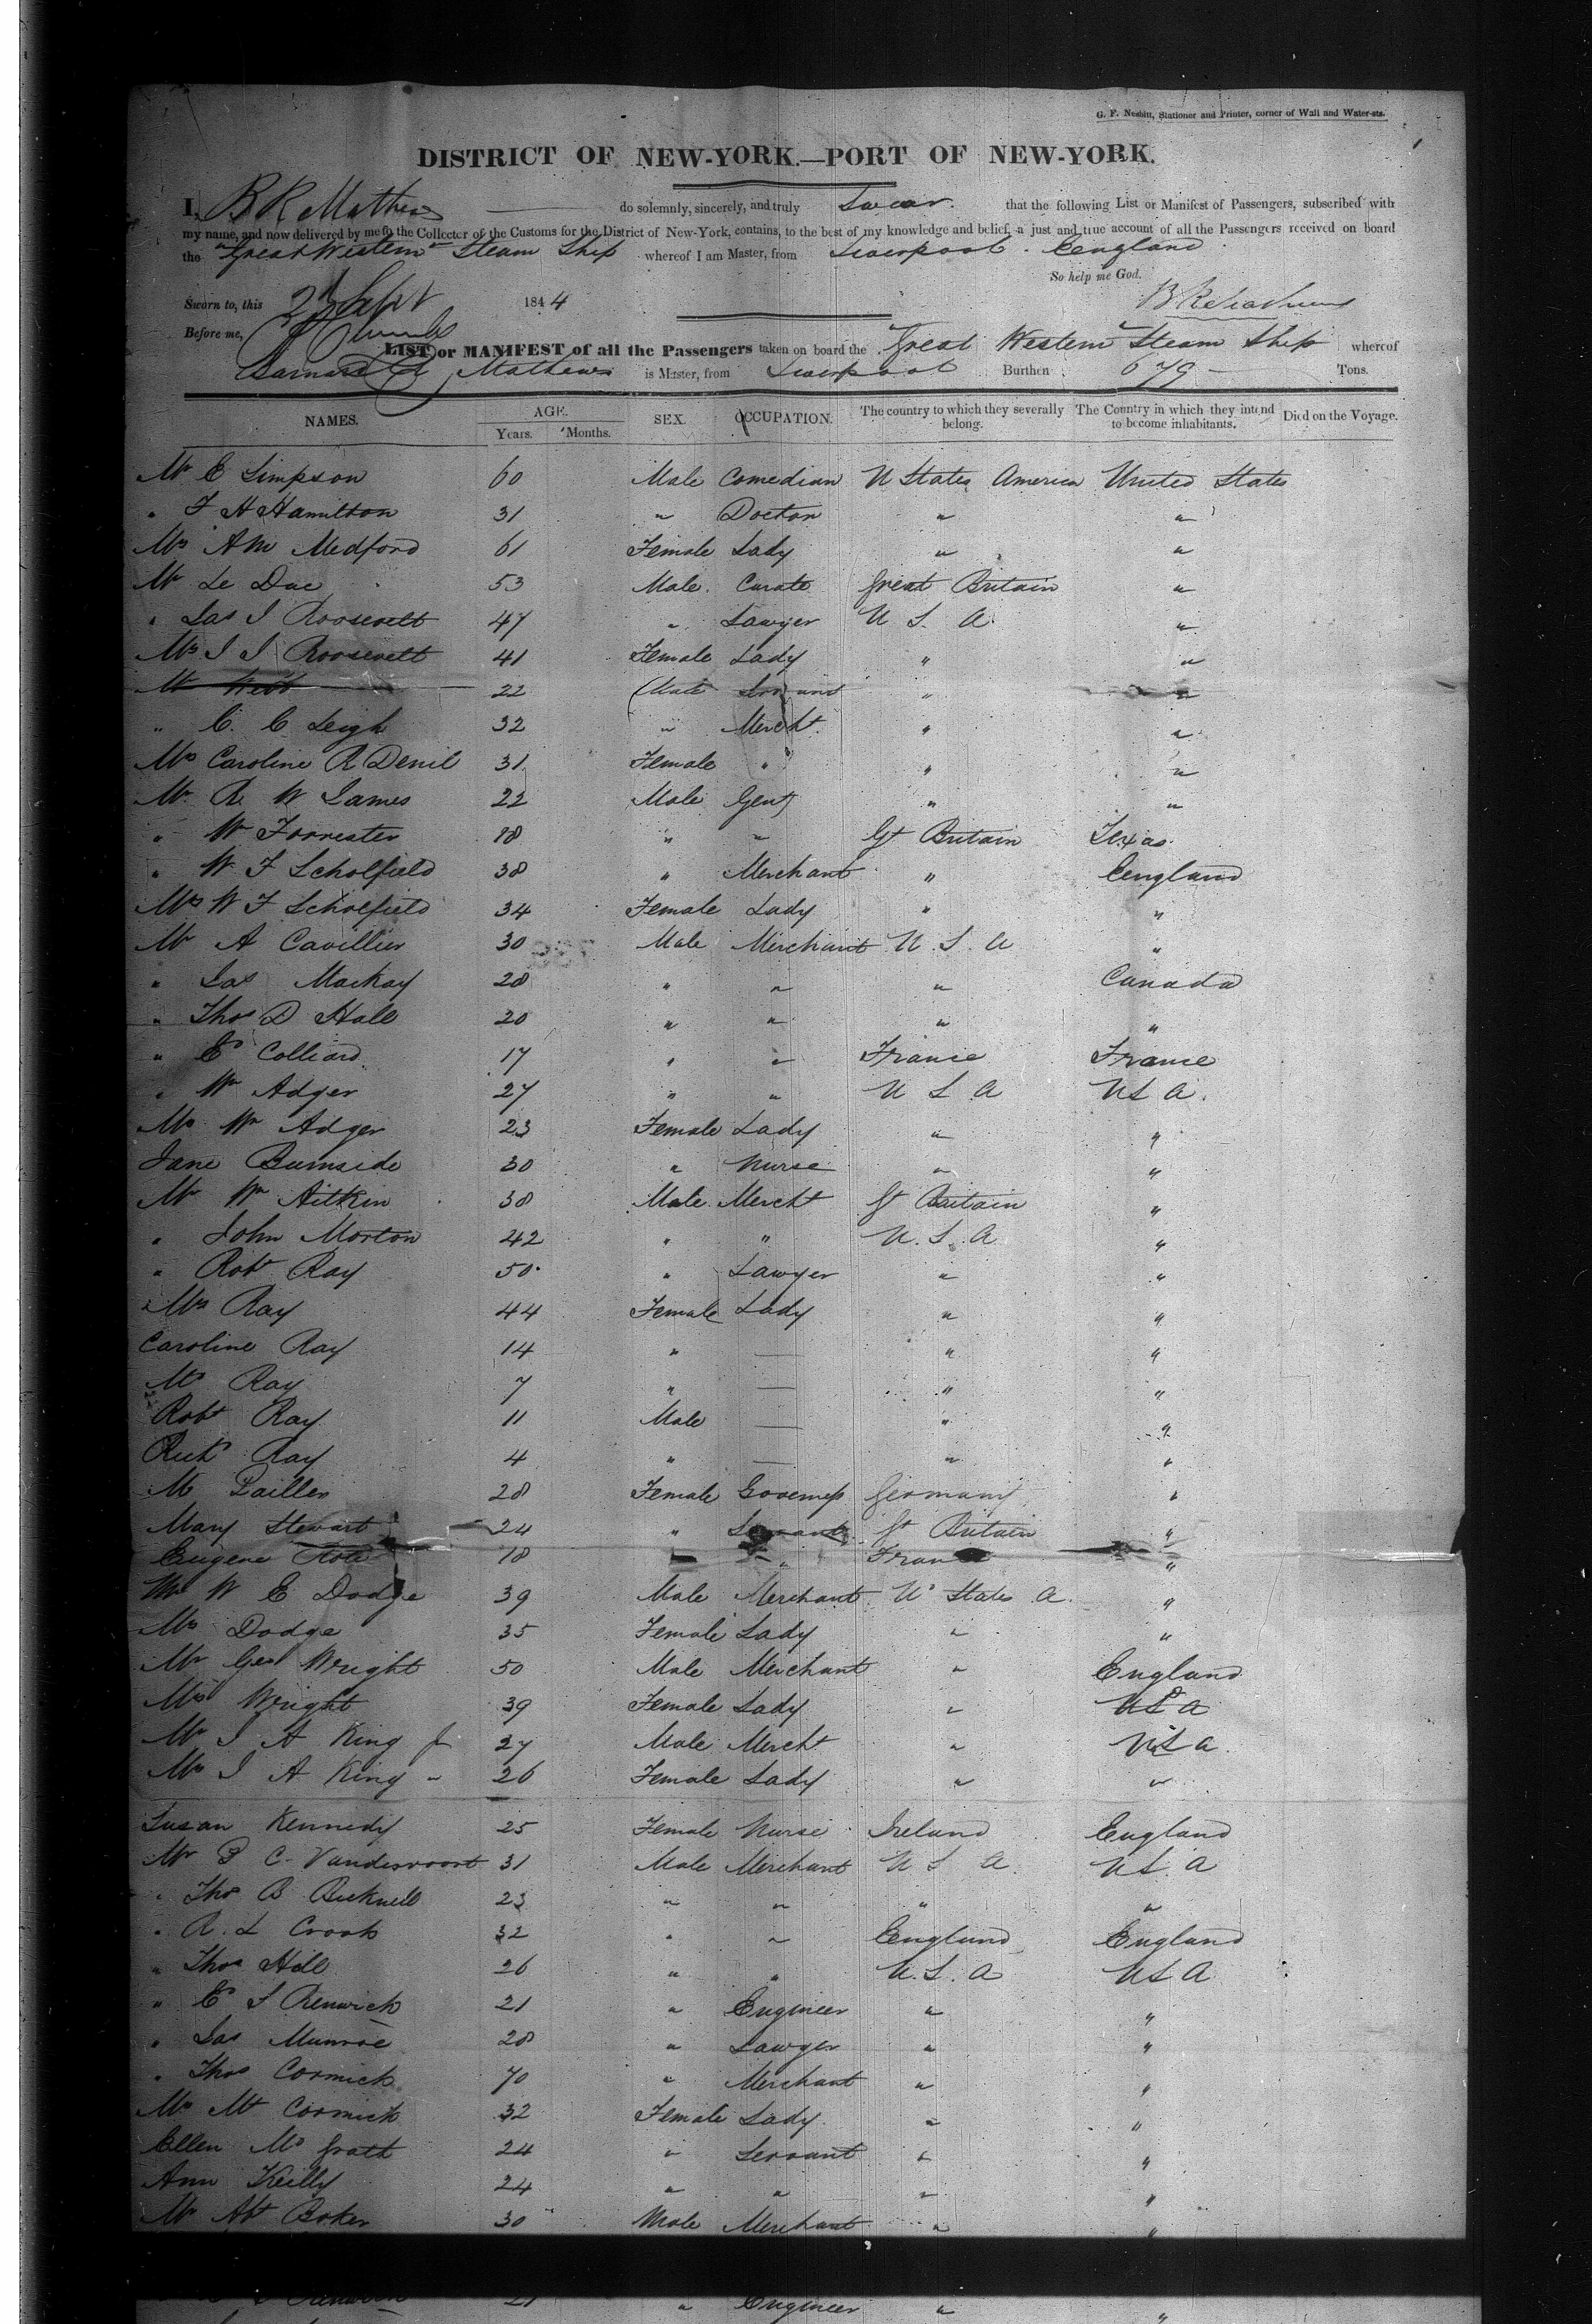 G. F. Nesbitt, Stationer and Printer, corner of Wall and Water-sts.
DISTRICT OF NEW-YORK.—PORT OF NEW-YORK.
I, B R Mathews do solemnly, sincerely, and truly Swear that the following List or Manifest of Passengers, subscribed with
my name, and now delivered by me to the Collector of the Customs for the District of New-York, contains, to the best of my knowledge and belief, a just and true account of all the Passengers received on board
the "Great Western" Steam Ship whereof I am Master, from Liverpool England.
So help me God.
Sworn to, this Sept 1844 B R Mathews
Before me,
LIST or MANIFEST of all the Passengers taken on board the Great Western Steam Ship whereof
Barnard R Mathews is Master, from Liverpool Burthen 679 Tons.
NAMES. AGE. SEX. OCCUPATION. The country to which they severally belong. The Country in which they intend to become inhabitants. Died on the Voyage.
Years. Months.
Mr E Simpson 60 Male Comedian U States America United States
" F H Hamilton 31 " Doctor " "
Mrs A M Medford 61 Female Lady " "
Mr Le Duc 53 Male Curate Great Britain "
" Jas J Roosevelt 47 " Lawyer U S A "
Mrs J J Roosevelt 41 Female Lady " "
Mr Webb 22 Male Servant " "
" C. C Leigh 32 " Mercht. " "
Mrs Caroline R Denil 31 Female " " "
Mr R W James 22 Male Gent " "
" W Forrester 18 " " Gt Britain Texas
" W F Scholfield 38 " Merchant " England
Mrs W F Scholfield 34 Female Lady " "
Mr A Cavillier 30 Male Merchant U. S. A "
" Jas Mackay 28 " " " Canada
" Thos D Hall 20 " " " "
" E Colliard 17 " " France France
" Wm Adger 27 " " U S A U S A.
Mrs Wm Adger 23 Female Lady " "
Jane Burnside 30 " Nurse " "
Mr Wm Aitkin 38 Male Mercht Gt Britain "
" John Morton 42 " " U. S. A "
" Robt Ray 50 " Lawyer " "
Mrs Ray 44 Female Lady " "
Caroline Ray 14 " — " "
Ms Ray 7 " — " "
Robt Ray 11 Male — " "
Richd Ray 4 " — " "
M Pailler 28 Female Governess Germany "
Mary Stewart 24 " Servant Gt Britain "
Eugene 18 " " France "
Mr W E Dodge 39 Male Merchant U States A. "
Mrs Dodge 35 Female Lady " "
Mr Geo Wright 50 Male Merchant " England
Mrs Wright 39 Female Lady " U S A
Mr J A King Jr 27 Male Mercht " U S A.
Mrs J A King " 26 Female Lady " "
Susan Kennedy 25 Female Nurse Ireland England
Mr P C. Vandervoort 31 Male Merchant U S A. U S. A
" Thos B Bucknell 23 " " " "
" R. L Crook 32 " " England England
" Thos Hill 26 " " U. S. A U S A
" E S Renwick 21 " Engineer " "
" Jas Munroe 28 " Lawyer " "
" Thos Cormick 70 " Merchant " "
Mrs Mc Cormick 32 Female Lady " "
Ellen Mc Gratt 24 " Servant " "
Ann Kelly 24 " " " "
Mr Abt Boker 30 Male Merchant " "
Renwick 21 " Engineer " "